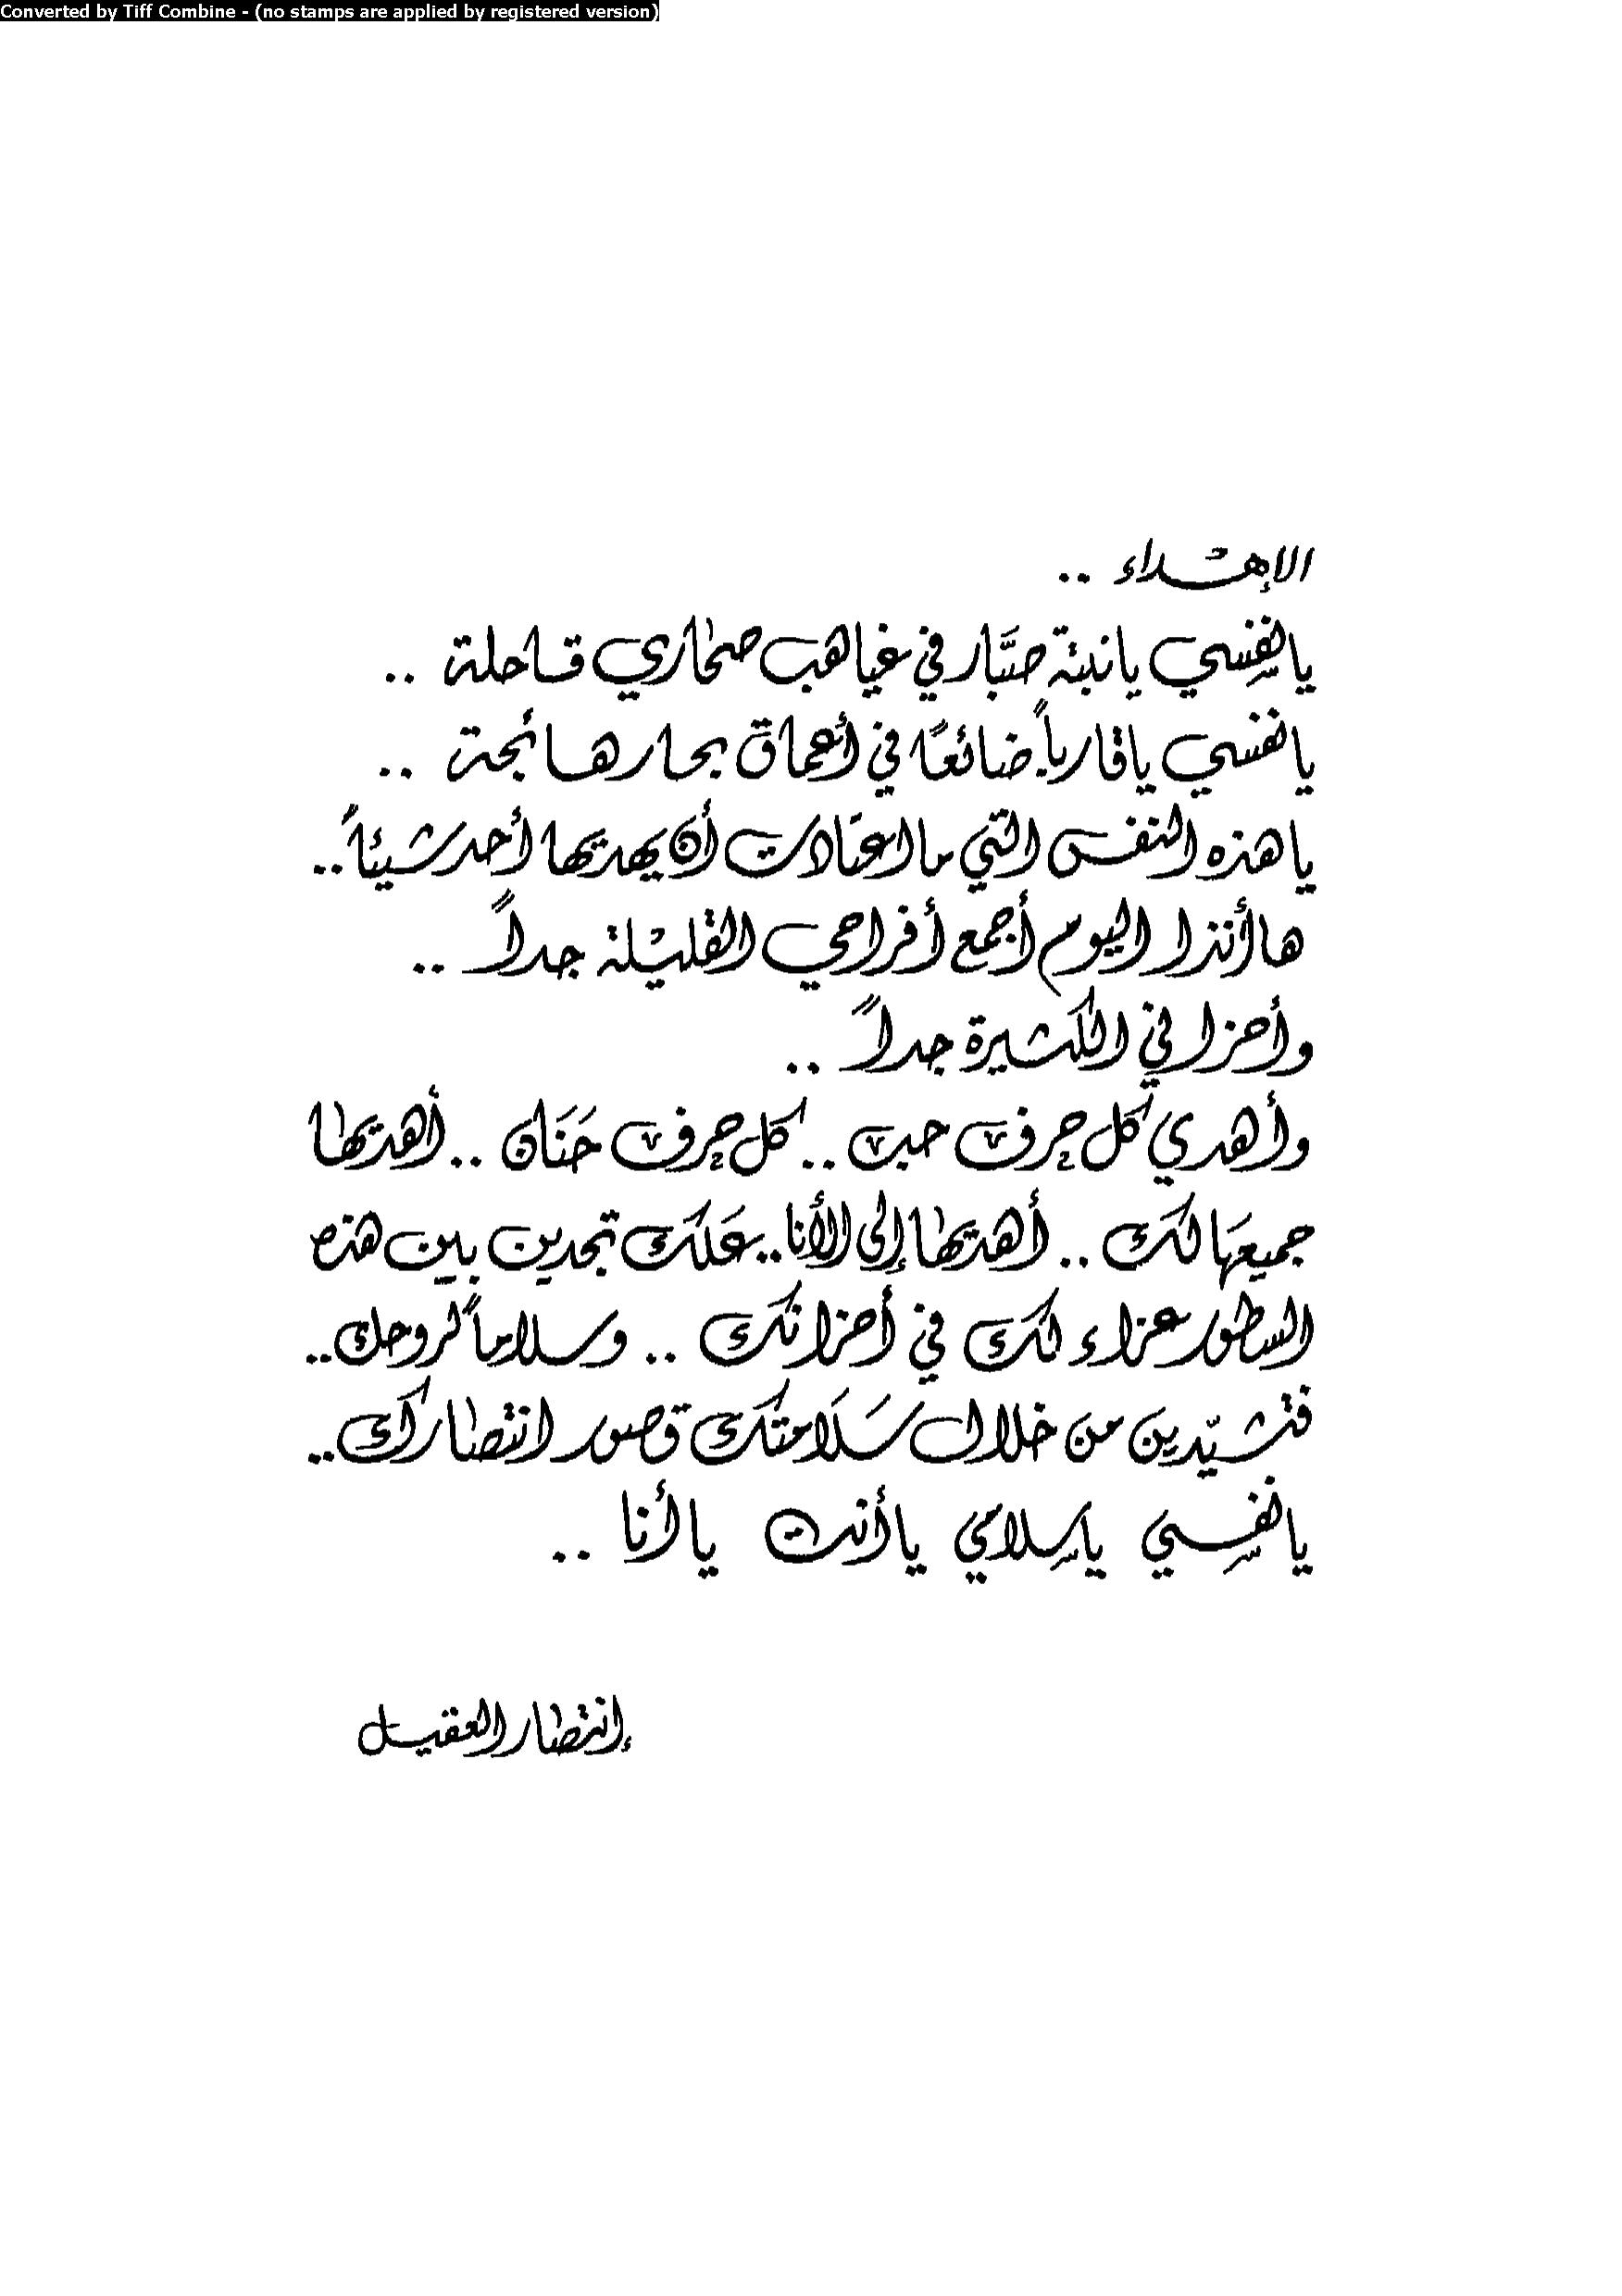 Converted by Tiff Combine - (no stamps are applied by registered version)
الإهداء ..
يا نفسي يا نبتة صبَّار في غياهب صحاري قاحلة ..
يا نفسي يا قارباً ضائعًا في أعماق بحار هائجة ..
يا هذه النفس التي ما اعتَادت أن يهديها أحد شيئاً ..
ها أنذا اليوم أجمع أفراحي القليلة جداً ..
وأحزاني الكثيرة جداً ..
وأهدي كل حرف حب .. كل حرف حَنَان .. أهديها
جميعَها لك .. أهديها إلى الأنا .. عَلك تجدين بين هذه
السطور عزاء لك في أحزانك .. وسلاماً لروحك ..
فتشيّدين من خلال سَلَامتك قصور انتصارك ..
يا نفسِي يا سِلامي يا أنت يا أنا ..
إنتصار العقيل